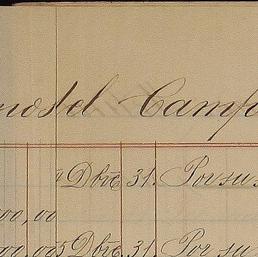 Campo
9 Dbre 31. Por su s
00,00
00,00 5 Dbre 31. Por su